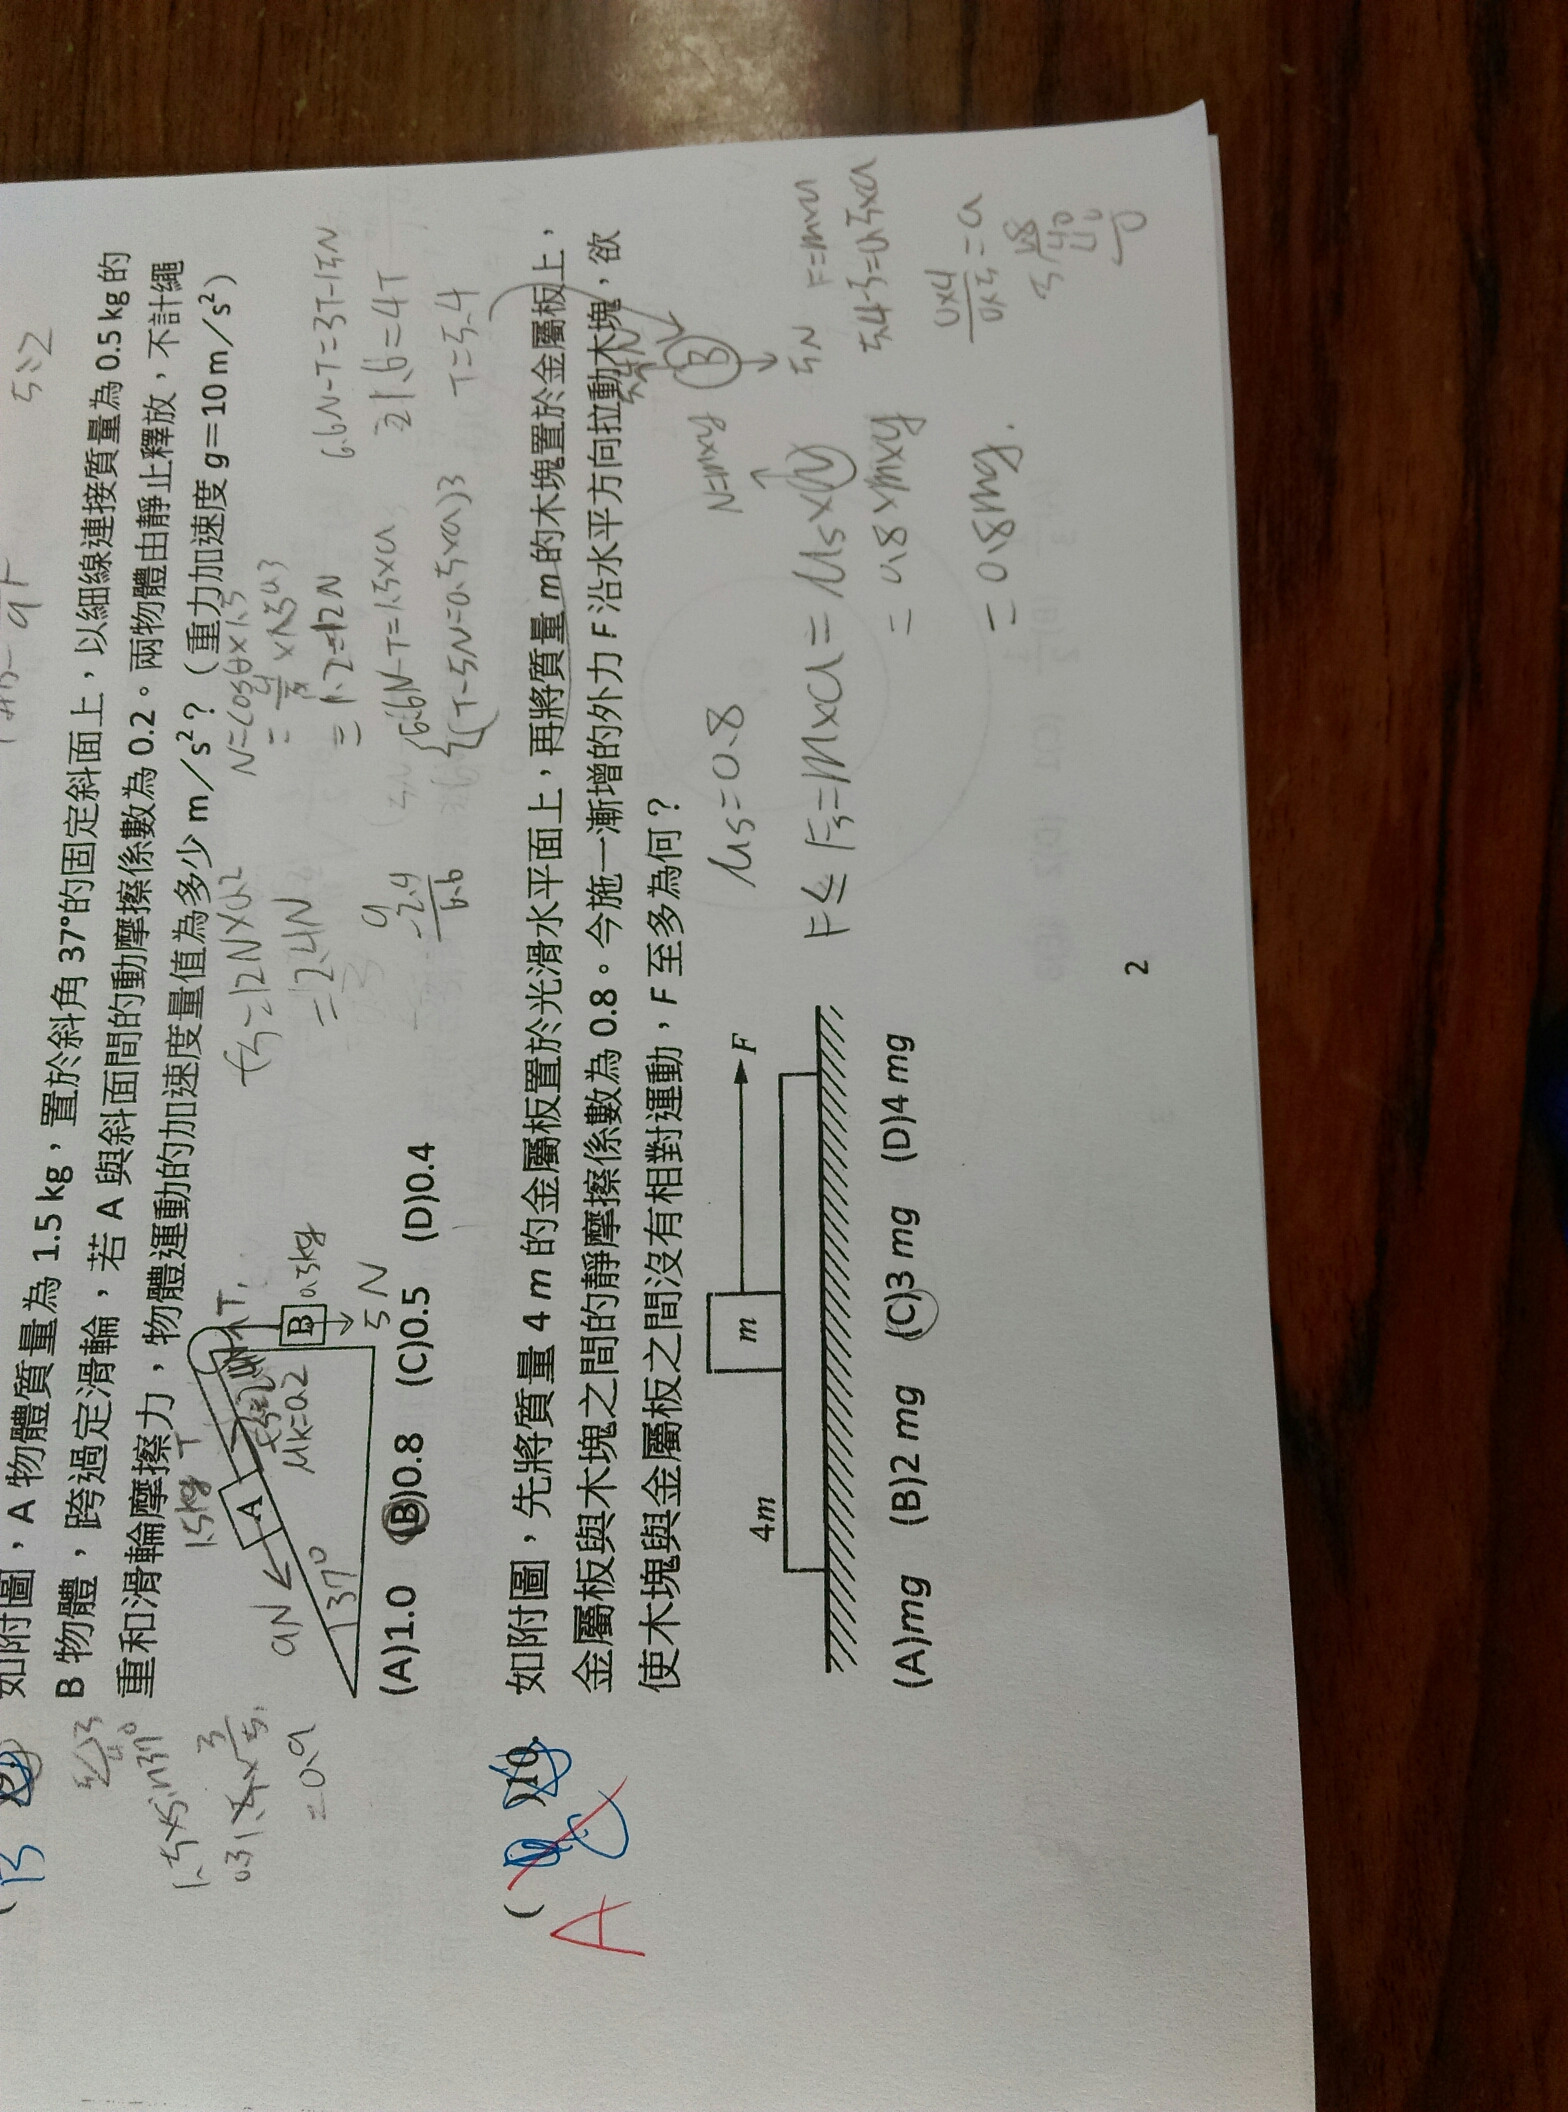 如附圖，A 物體質量為 1.5 kg，置於斜角 37°的固定斜面上，以細線連接質量為 0.5 kg 的
B 物體，跨過定滑輪，若 A 與斜面間的動摩擦係數為 0.2。兩物體由靜止釋放，不計繩
重和滑輪摩擦力，物體運動的加速度量值為多少 m／s²？（重力加速度 g＝10 m／s²）
N=cosθ×1.5
=1.2=12N
fs=12N×0.2
=2.4N
9
-2.4
6.6
6.6N-T=1.5×a
(T-5N=0.5×a)3
6.6N-T=3T-15N
21.6=4T
T=5.4
1.5kg
T
A
9N
37°
μk=0.2
T
B
0.5kg
5N
=0.9
(A)1.0 (B)0.8 (C)0.5 (D)0.4
A
( C )10.
如附圖，先將質量 4 m 的金屬板置於光滑水平面上，再將質量 m 的木塊置於金屬板上，
金屬板與木塊之間的靜摩擦係數為 0.8。今施一漸增的外力 F 沿水平方向拉動木塊，欲
使木塊與金屬板之間沒有相對運動，F 至多為何？
m
F
4m
μs=0.8
N=m×g
F≤Fs=m×a=μs×N
=0.8×m×g
=0.8mg.
B
5N
F=ma
5.4-5=0.5×a
0.4
0.5
=a
(A)mg (B)2 mg (C)3 mg (D)4 mg
2